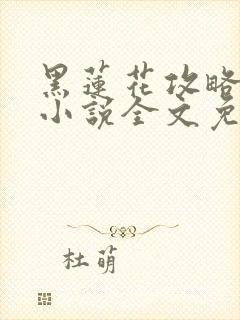 黑蓮花攻略
小說全文免
杜萌